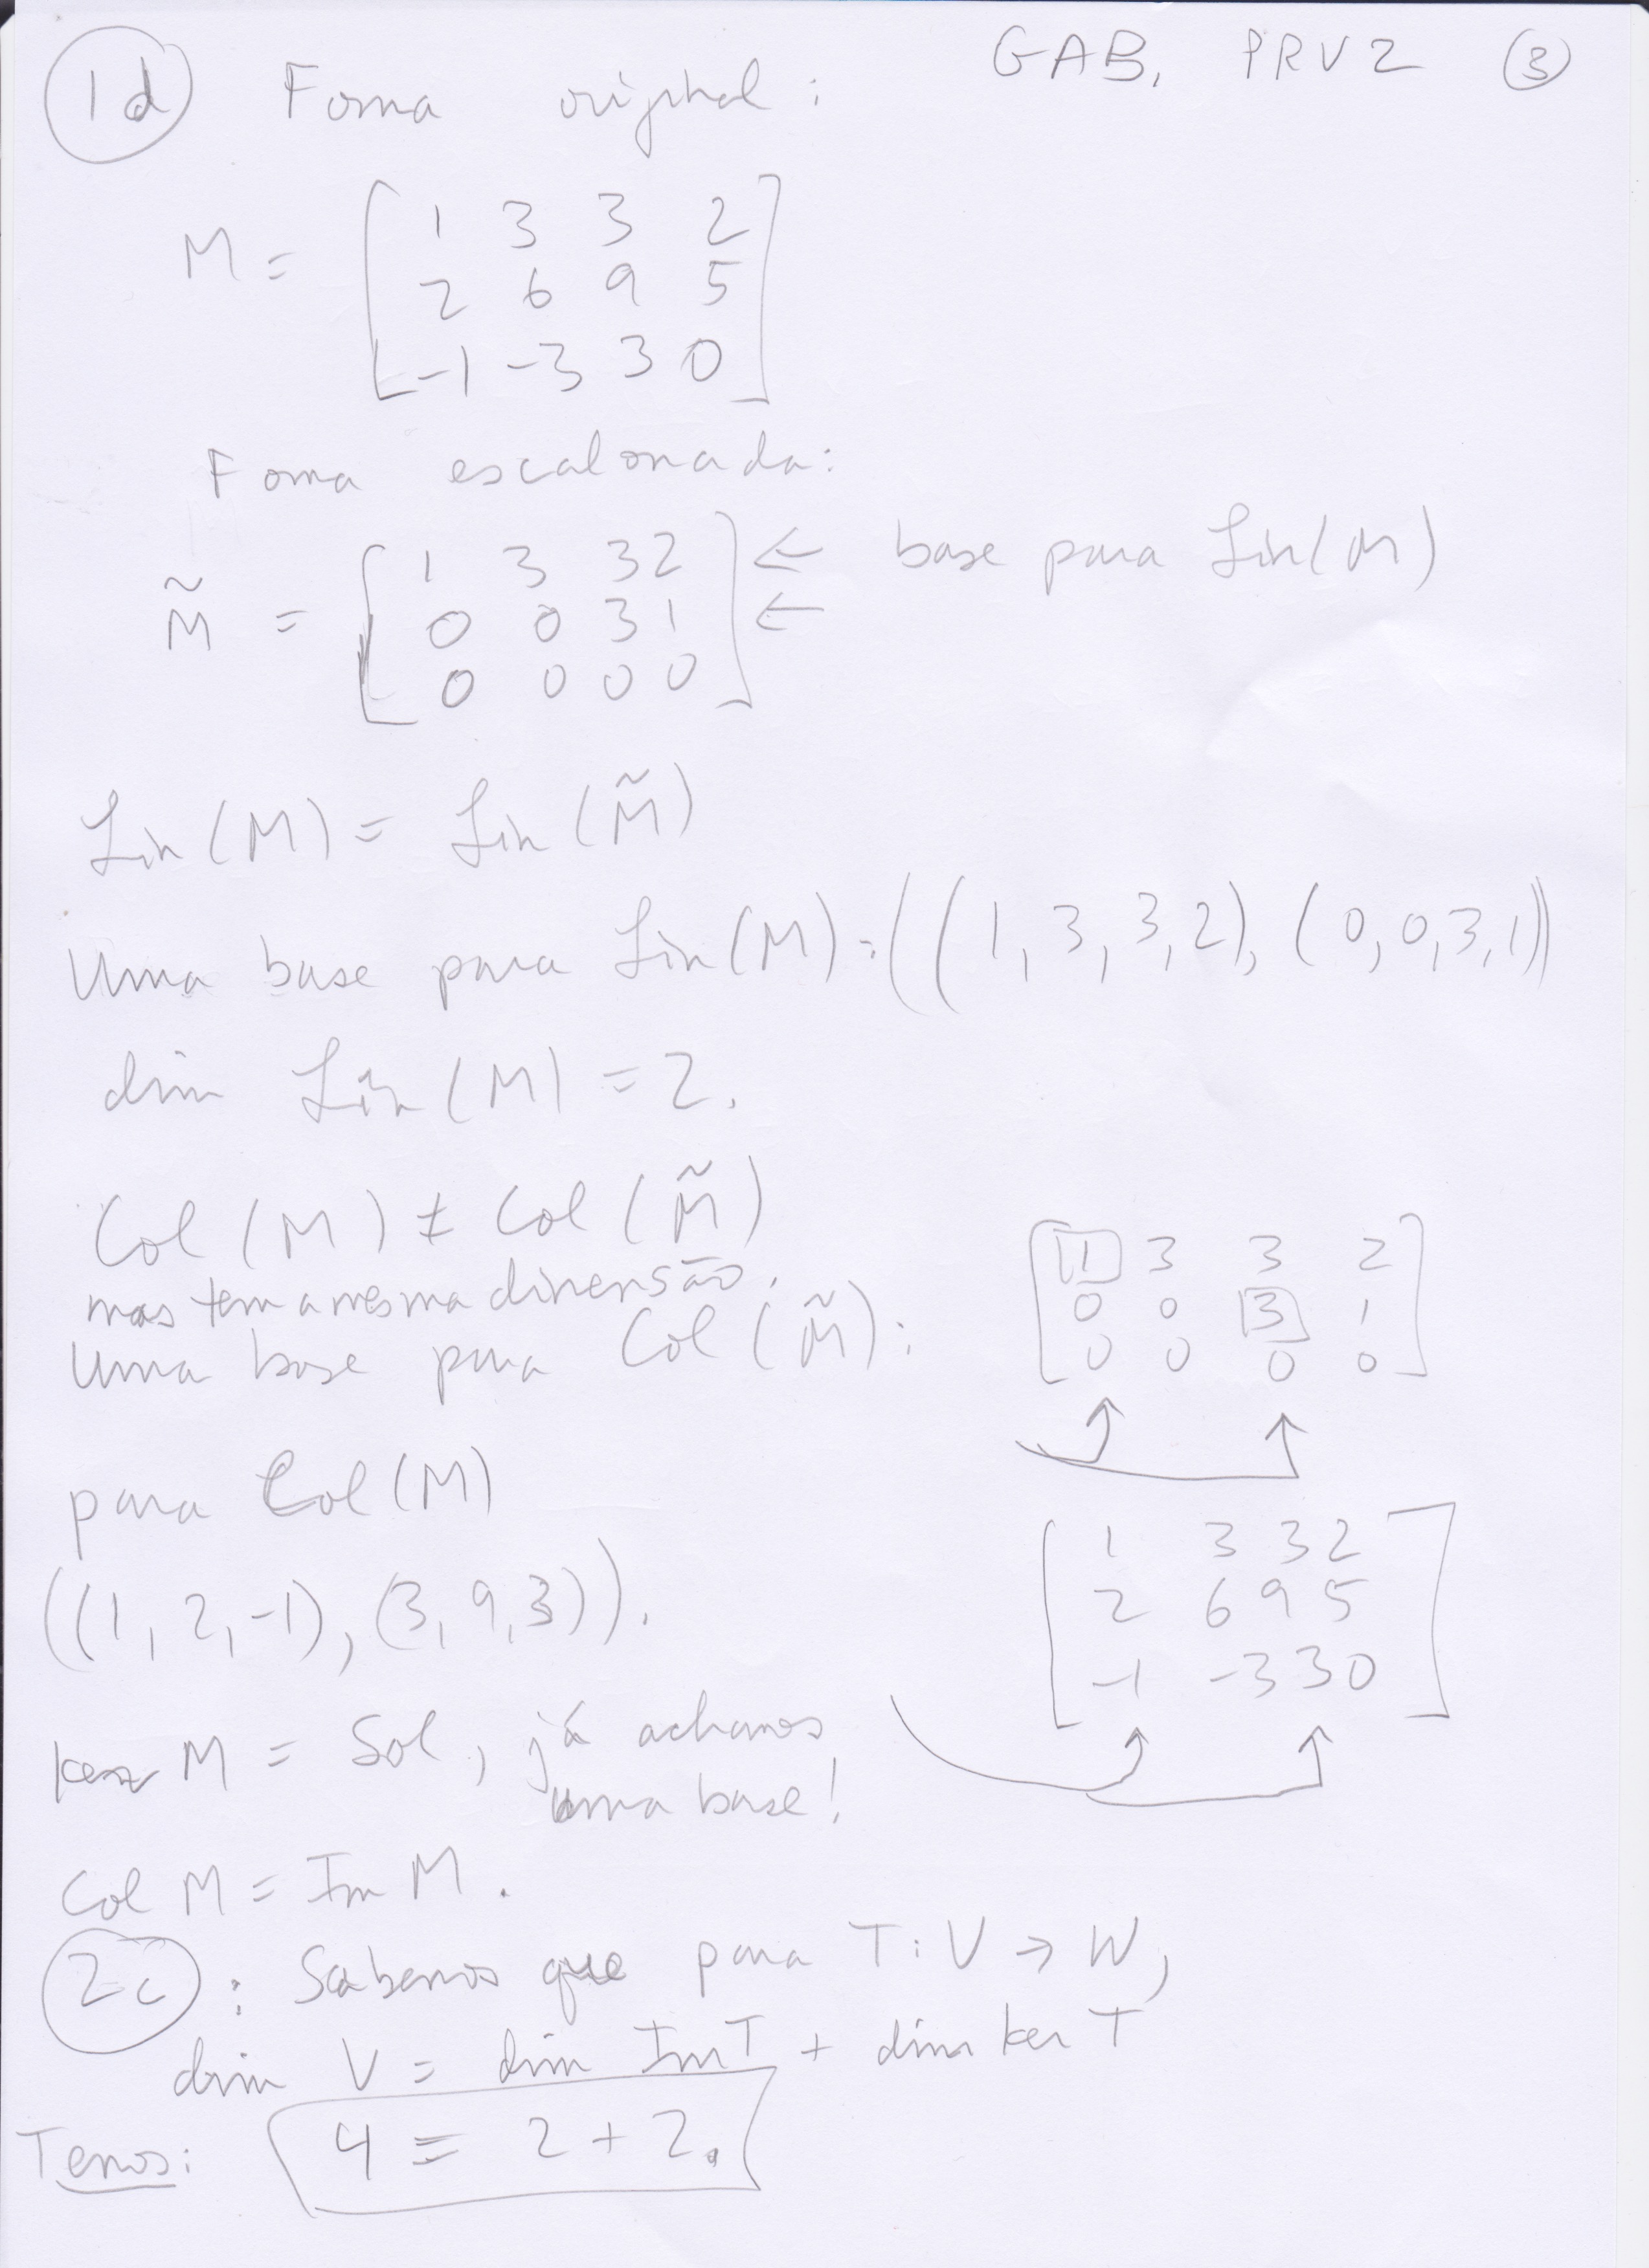 GAB. PRV2 (3)
1d Forma original:
M = [ 1 3 3 2
2 6 9 5
-1 -3 3 0 ]
Forma escalonada:
M̃ = [ 1 3 3 2 ← base para Lin(M)
0 0 3 1 ←
0 0 0 0 ]
Lin(M) = Lin(M̃)
Uma base para Lin(M): ((1,3,3,2), (0,0,3,1))
dim Lin(M) = 2.
Col(M) ≠ Col(M̃)
mas tem a mesma dimensão.
Uma base para Col(M̃):
[ 1 3 3 2
0 0 3 1
0 0 0 0 ]
para Col(M)
((1,2,-1), (3,9,3)).
[ 1 3 3 2
2 6 9 5
-1 -3 3 0 ]
ker M = Sol, já achamos
uma base!
Col M = Im M.
2c: Sabemos que para T: V → W,
dim V = dim Im T + dim ker T
Temos: 4 = 2 + 2.